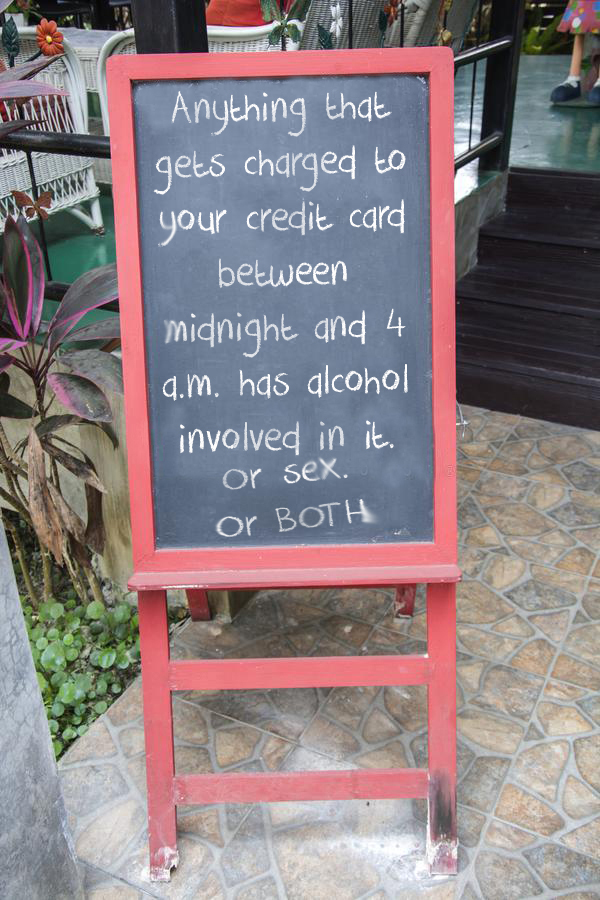 Anything that
gets charged to
your credit card
between
midnight and 4
a.m. has alcohol
involved in it.
or sex.
or BOTH